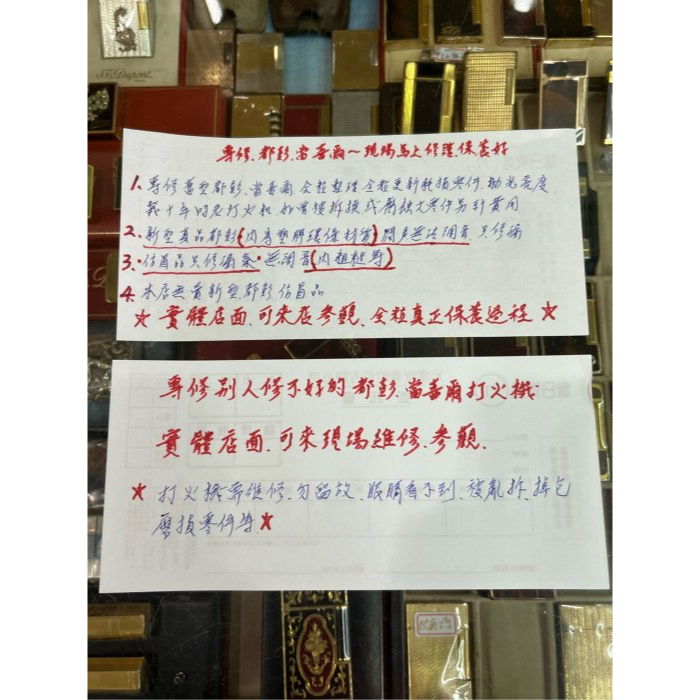 S.T. Dupont
專修.都彭.當喜爾~現場馬上修理.保養好
1. 專修舊型都彭.當喜爾 全程整理 全程更新耗損零件.拋光亮度.
幾十年的老打火机 如需要拆換或腐蝕大零件另計費用
2. 新型真品都彭(內為塑膠環保材質)開聲無法調音 只修漏
3. 仿冒品只修漏氣.無調音(內粗糙等)
4. 本店無賣新型.都彭.仿冒品
★ 實體店面.可來店參觀.全程真正保養過程 ★
專修別人修不好的都彭.當喜爾打火機
實體店面.可來現場維修.參觀.
★ 打火機需維修.勿留放.眼睛看不到.被亂拆.掉包
磨損零件等.★